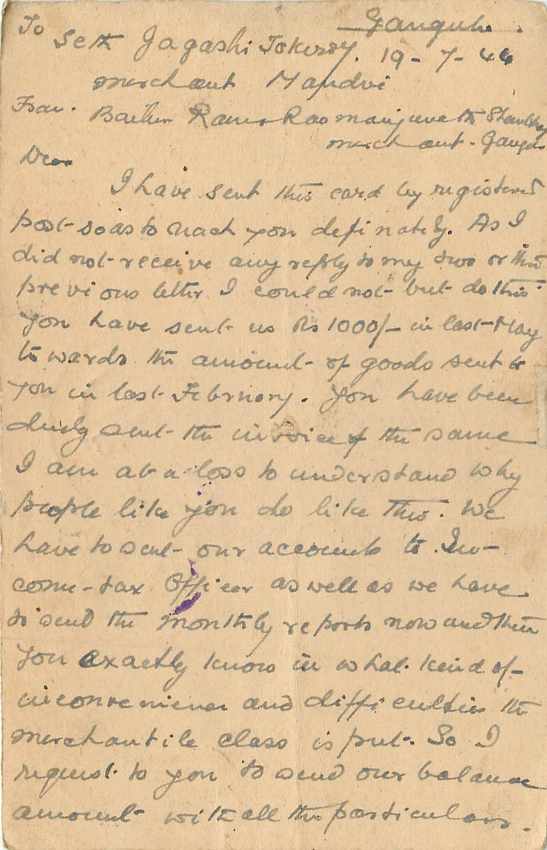 Ganguli.
To
Seth Jagashi Tokersy. 19-7-44
merchant Mandvi
From. Rama Rao manjunath Shanbhag
merchant - Gango
Dear
I have sent this card by registered
post - so as to reach you definately. As I
did not - receive any reply to my two or three
previous letter I could not - but do this
You have sent - us Rs 1000/- in last - May
towards the amount - of goods sent to
you in last - Febrriory. You have been
duly sent - the invoice of the same
I am at a loss to understand why
people like you do like this. We
have to sent - our accounts to In-
come - tax Officer as well as we have
to send the monthly reports now and then
You exactly know in what kind of -
inconvenience and difficulties the
merchantile class is put. So I
request - to you to send our balance
amount - with all the particulars.